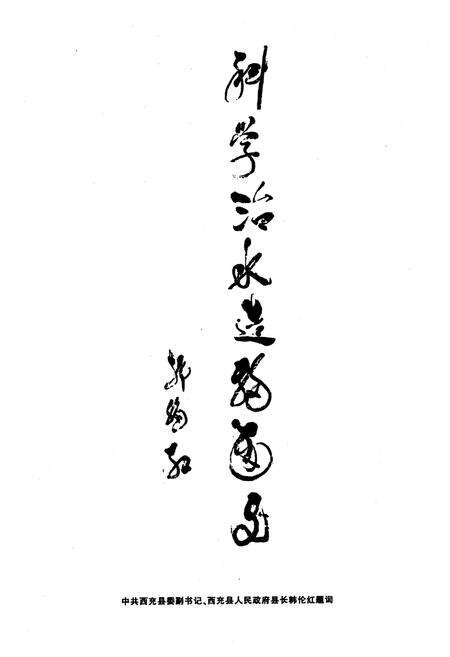 科学治水造福萬民
韩伦红
中共西充县委副书记、西充县人民政府县长韩伦红题词